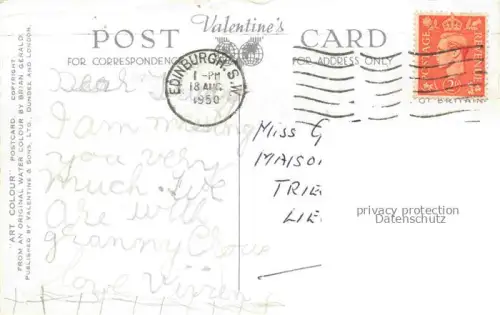 Valentine's
POST CARD
FOR CORRESPONDENCE
FOR ADDRESS ONLY
EDINBURGH. S.W.
1 - PM
18 AUG
1950
POSTAGE
REVENUE
OF BRITAIN
Dear
I am missing
you very
much. We
are with
granny
love Vivien
Miss G
MAISO
TRIE
LIE
privacy protection
Datenschutz
"ART COLOUR" POSTCARD. COPYRIGHT.
FROM AN ORIGINAL WATER COLOUR BY BRIAN GERALD.
PUBLISHED BY VALENTINE & SONS, LTD., DUNDEE AND LONDON.